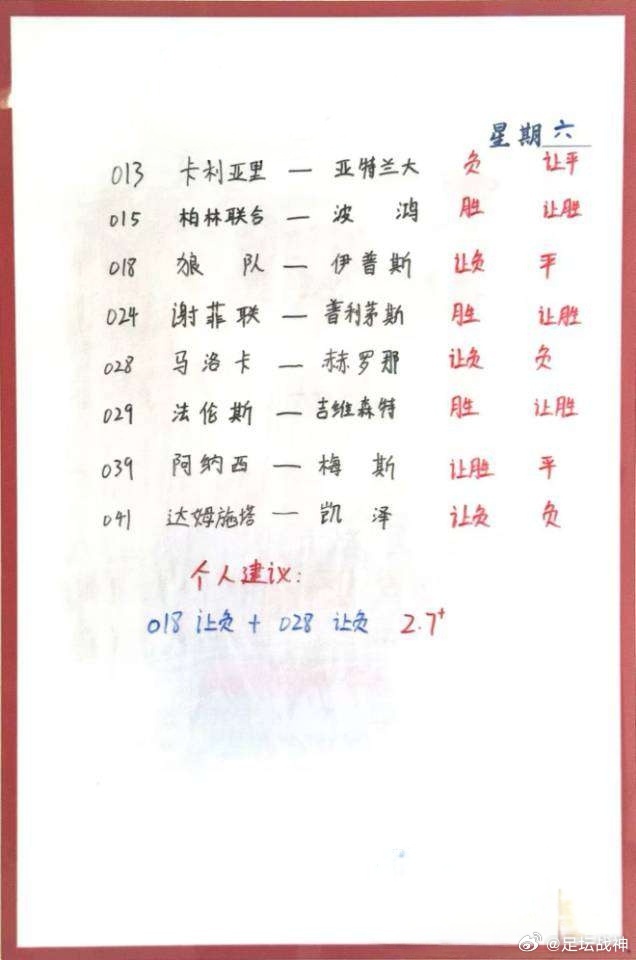 星期六
013 卡利亚里 — 亚特兰大 负 让平
015 柏林联合 — 波鸿 胜 让胜
018 狼队 — 伊普斯 让负 平
024 谢菲联 — 普利茅斯 胜 让胜
028 马洛卡 — 赫罗那 让负 负
029 法伦斯 — 吉维森特 胜 让胜
039 阿纳西 — 梅斯 让胜 平
041 达姆施塔 — 凯泽 让负 负
个人建议:
018 让负 + 028 让负 2.7+
@足坛战神